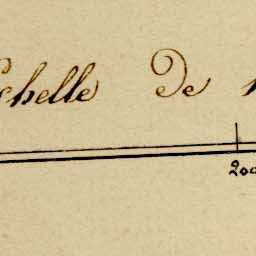 chelle De
200